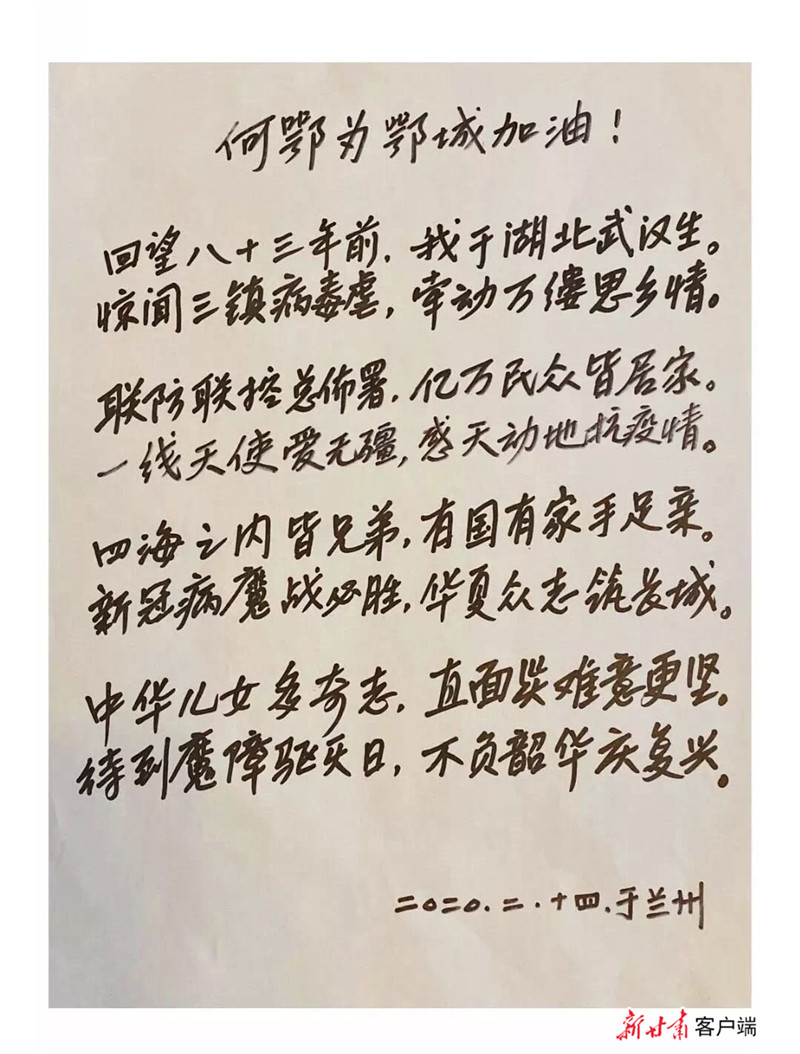 何鄂为鄂城加油！
回望八十三年前，我于湖北武汉生。
惊闻三镇病毒虐，牵动万缕思乡情。
联防联控总布署，亿万民众皆居家。
一线天使爱无疆，感天动地抗疫情。
四海之内皆兄弟，有国有家手足亲。
新冠病魔战必胜，华夏众志筑长城。
中华儿女多奇志，直面灾难意更坚。
待到魔障驱灭日，不负韶华庆复兴。
二〇二〇.二.十四.于兰州
新甘肃 客户端